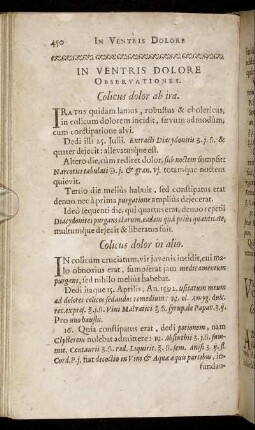 450 IN VENTRIS DOLORE
IN VENTRIS DOLORE
OBSERVATIONES.
Colicus dolor ab ira.
IRatus quidam lanius, robustus & cholericus,
in colicum dolorem incidit, sævum admodùm,
cum constipatione alvi.
Dedi illi 25. Julii. Extracti Diacydonitis ʒ.j.ß. &
quater dejecit: allevatumque est.
Altero die, cum rediret dolor, sub noctem sumpsit
Narcotici tabulati ʒ.j. & gran. vj. totamque noctem
quievit.
Tertio die meliùs habuit, sed constipatus erat
denuo nec à prima purgatione ampliùs dejecerat.
Ideò sequenti die, qui quartus erat, denuo repetii
Diacydonites purgans clarum, eadem quâ priùs quantitate,
multumque dejecit & liberatus fuit.
Colicus dolor in alio.
IN colicum cruciatum, vir juvenis incidit, cui ma-
lo obnoxius erat, sumpserat jam medicamentum
purgans, sed nihilo meliùs habebat.
Dedi itaque 15. Aprilis, An. 1592. usitatum meum
ad dolores colicos sedandos remedium:
Pro uno haustu.
16. Quia constipatus erat, dedi potionem, nam
Clysterem nolebat admittere: ♃. Absinthii ʒ.j.ß. sum-
mit. Centaurii ʒ.ß. rad. Liquirit. ʒ.ß. sem. Anisi ʒ.ij. fl.
Cord. P.j. fiat decoctio in Vini & Aquæ æquis partibus, in-
fundan-